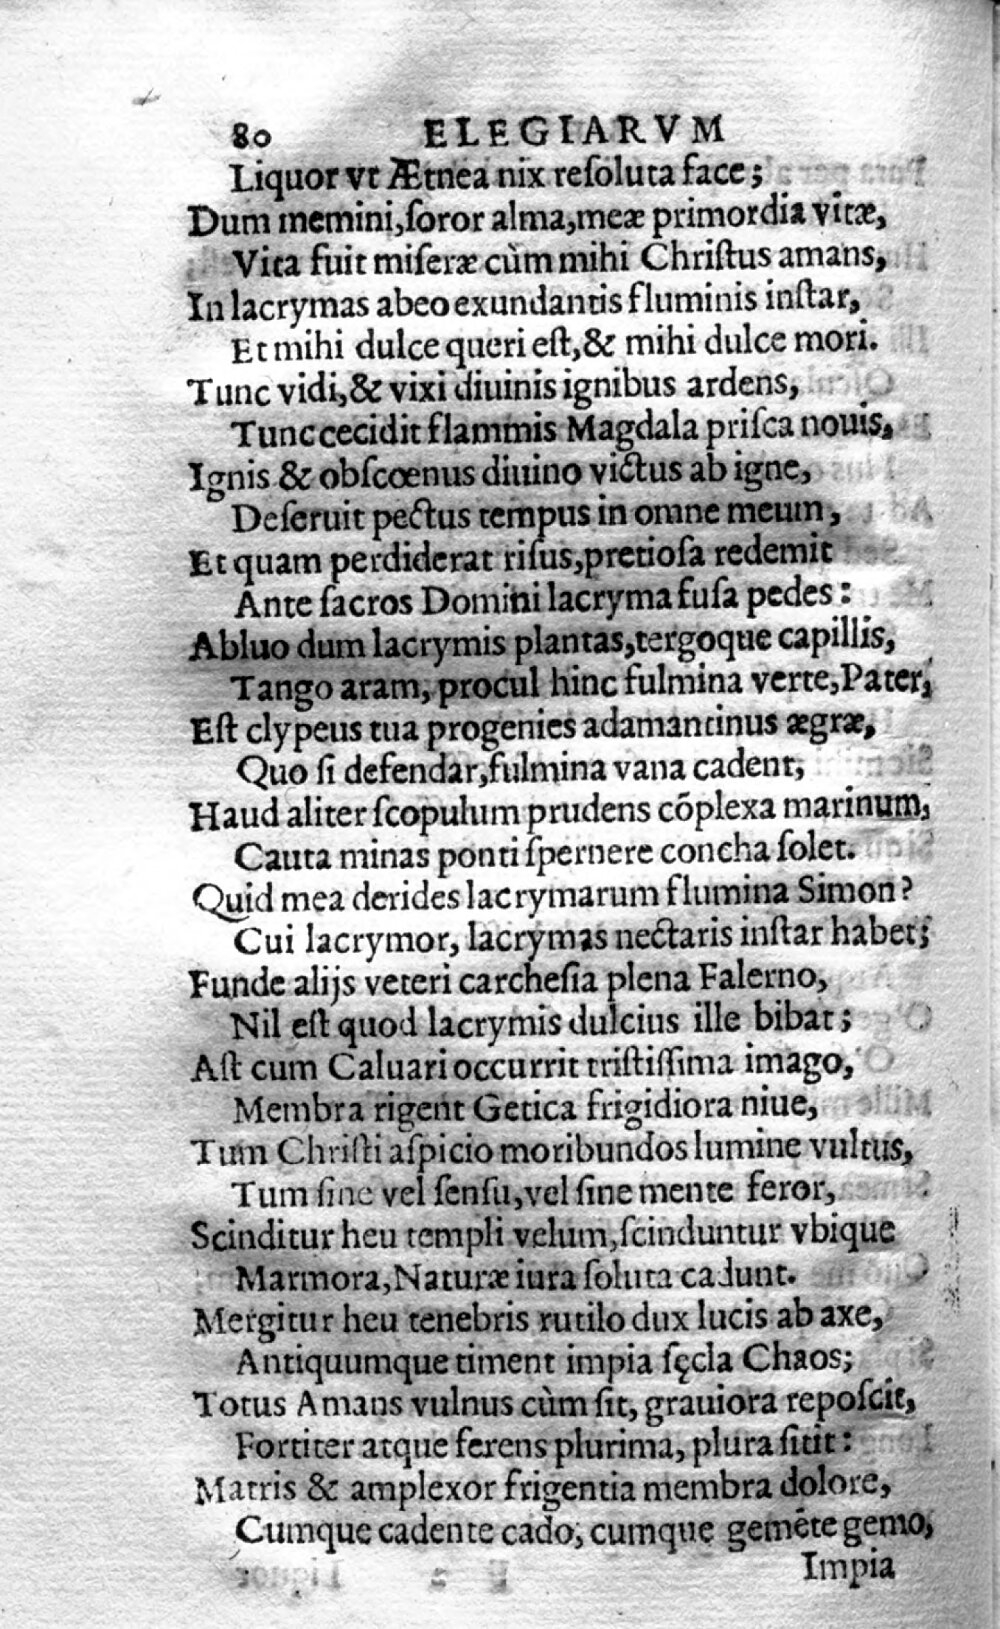 80 ELEGIARVM
Liquor vt Ætnea nix reſoluta face;
Dum memini, ſoror alma, meæ primordia vitæ,
Vita fuit miſeræ cùm mihi Chriſtus amans,
In lacrymas abeo exundantis fluminis inſtar,
Et mihi dulce queri eſt, & mihi dulce mori.
Tunc vidi, & vixi diuinis ignibus ardens,
Tunc cecidit flammis Magdala priſca nouis,
Ignis & obſcœnus diuino victus ab igne,
Deſeruit pectus tempus in omne meum,
Et quam perdiderat riſus, pretioſa redemit
Ante ſacros Domini lacryma fuſa pedes:
Abluo dum lacrymis plantas, tergoque capillis,
Tango aram, procul hinc fulmina verte, Pater,
Eſt clypeus tua progenies adamantinus ægræ,
Quo ſi defendar, fulmina vana cadent,
Haud aliter ſcopulum prudens cõplexa marinum,
Cauta minas ponti ſpernere concha ſolet.
Quid mea derides lacrymarum flumina Simon?
Cui lacrymor, lacrymas nectaris inſtar habet;
Funde alijs veteri carcheſia plena Falerno,
Nil eſt quod lacrymis dulcius ille bibat;
Aſt cum Caluari occurrit triſtiſſima imago,
Membra rigent Getica frigidiora niue,
Tum Chriſti aſpicio moribundos lumine vultus,
Tum ſine vel ſenſu, vel ſine mente feror,
Scinditur heu templi velum, ſcinduntur vbique
Marmora, Naturæ iura ſoluta cadunt.
Mergitur heu tenebris rutilo dux lucis ab axe,
Antiquumque timent impia ſęcla Chaos;
Totus Amans vulnus cùm ſit, grauiora repoſcit,
Fortiter atque ferens plurima, plura ſitit:
Matris & amplexor frigentia membra dolore,
Cumque cadente cado, cumque gemẽte gemo,
Impia